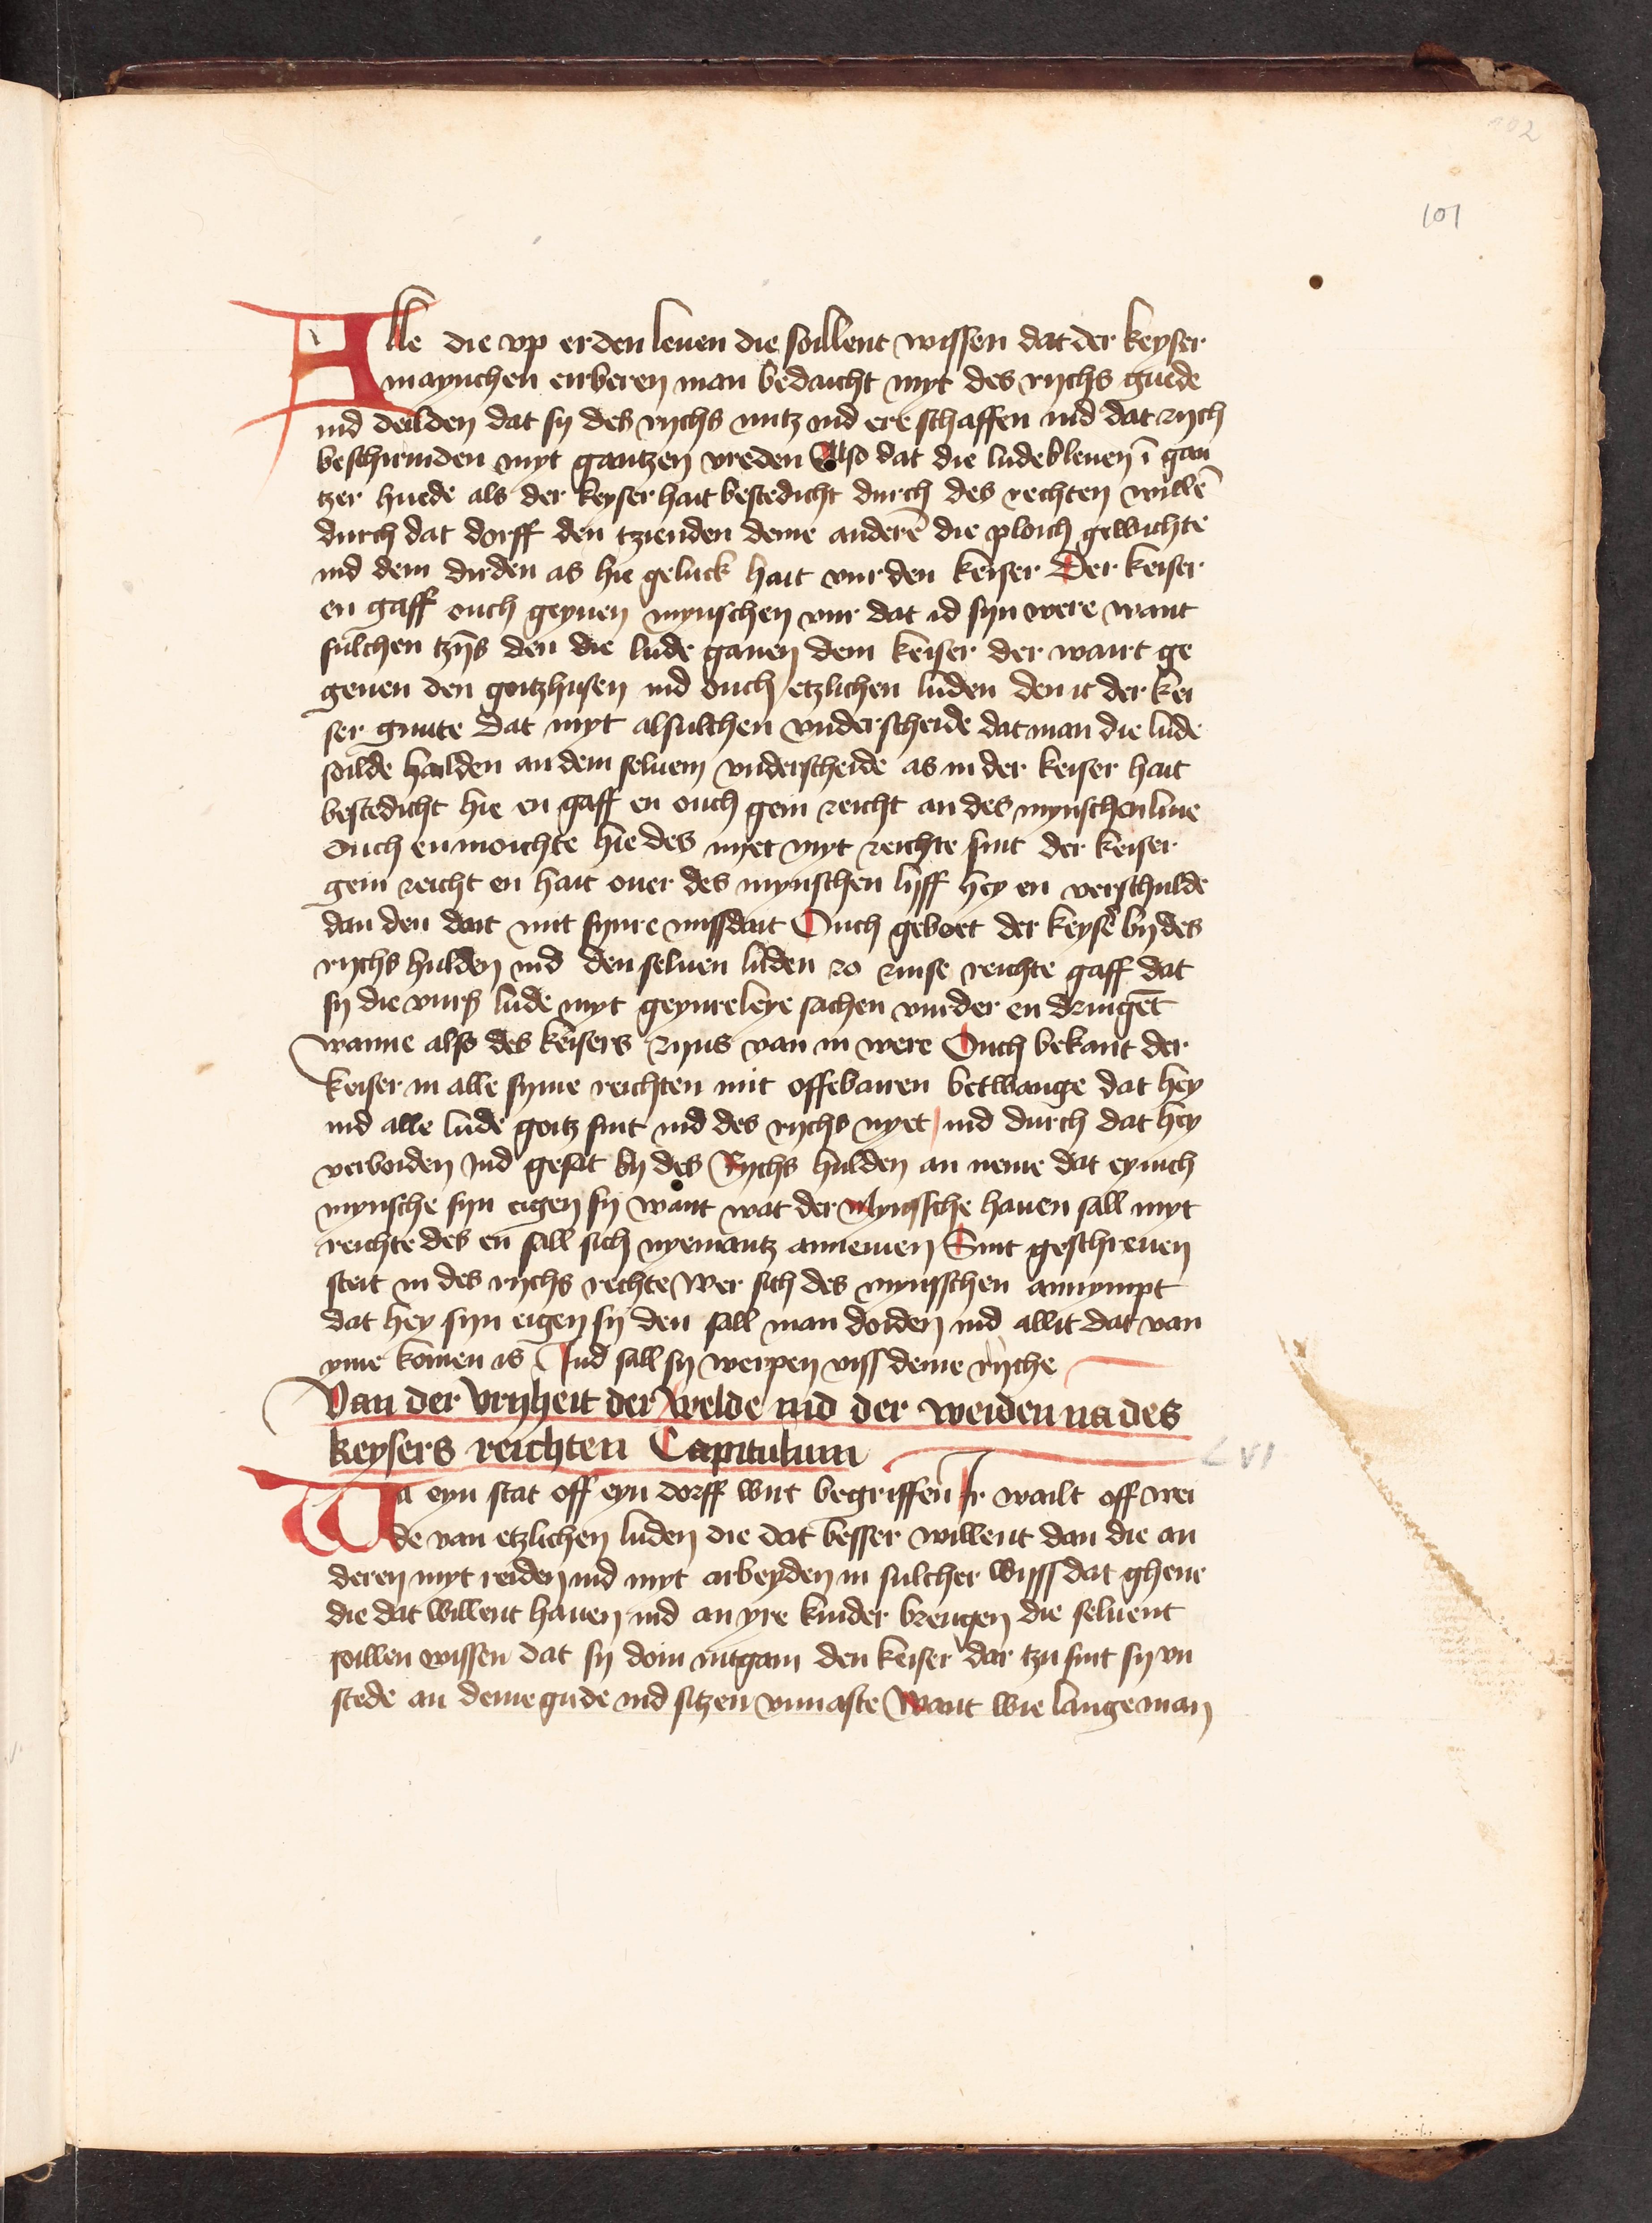 101
Alle die vp erden leuen die soillent wissen dat der keyser
maynchen eirberen man bedaicht myt des rychs guede
ind deilden dat sy des rychs nutz ind ere schaffen ind dat rych
beschirmden myt gantzen vreden Also dat die lude bleuen ī gan
tzer huede als der keyser hait bestedicht durch des rechten willē
durch dat dorff den tzienden deme anderē die ploich gewichte
ind dem dirden as hie geluck hait vur den keiser Der keiser
en gaff ouch geynen mynschen vur dat id syn were want
sulchen tzȳs den die lude gauen dem keiser der wart ge
geuen den goitzhusen ind ouch etzlichen luden den it der kei
ser gunte dat myt alsulchen vnderscheide dat man die lude
soilde halden an dem seluem vnderscheide as in der keiser hait
bestedicht hie en gaff en ouch gein reicht an des mynschen liue
Ouch en moichte hie des nyet myt reichte sint der keiser
gein reicht en hait ouer des mynschen lyff hey en verschulde
dan den doit mit synre missdait Ouch geboet der keysē by des
rychs hulden ind den seluen luden zo zinse reichte gaff dat
sy die vurß lude myt geynreleye sachen vurder en dringēt
wanne also des keisers zyns van in were Ouch bekant der
keiser in alle syme reichten mit offebairen betwange dat hey
ind alle lude goitz sint ind des rychs nyet ind durch dat hey
verboiden Ind gesat by des Rychs hulden an neme dat eynich
mynsche syn eigen sy want wat der Mynssche hauen sall myt
reichte des en sall sich nyemantz annemen Sint geschreuen
steit in des rychs rechte wer sich des mynsschen annympt
dat hey syn eigen sy den sall man doiden ind allit dat van
yme komen is Ind sall sy werpen viss deme ryche
Van der vryheit der welde ind der weiden na des
keysers reichten Capitulum LVI
Wa eyn stat off eyn dorff wirt begriffen Ir wailt off wei
de van etzlichen luden die dat besser willent dan die an
deren myt reiden ind myt arbeyden in sulcher wyss dat ghene
die dat willent hauen ind an yre kinder brengen die seluent
soillen wissen dat sy doin intgain den keiser dar tzu sint sy vn
stede an deme gude ind sitzen vnuaste Want wie lange man